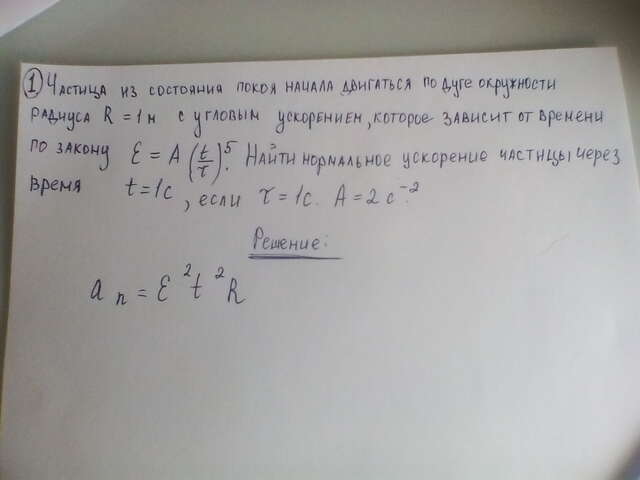 1 Частица из состояния покоя начала двигаться по дуге окружности
радиуса R = 1 м с угловым ускорением, которое зависит от времени
по закону ε = A (t/τ)⁵. Найти нормальное ускорение частицы через
время t = 1с, если τ = 1с. A = 2 с⁻².
Решение:
a n = ε² t² R